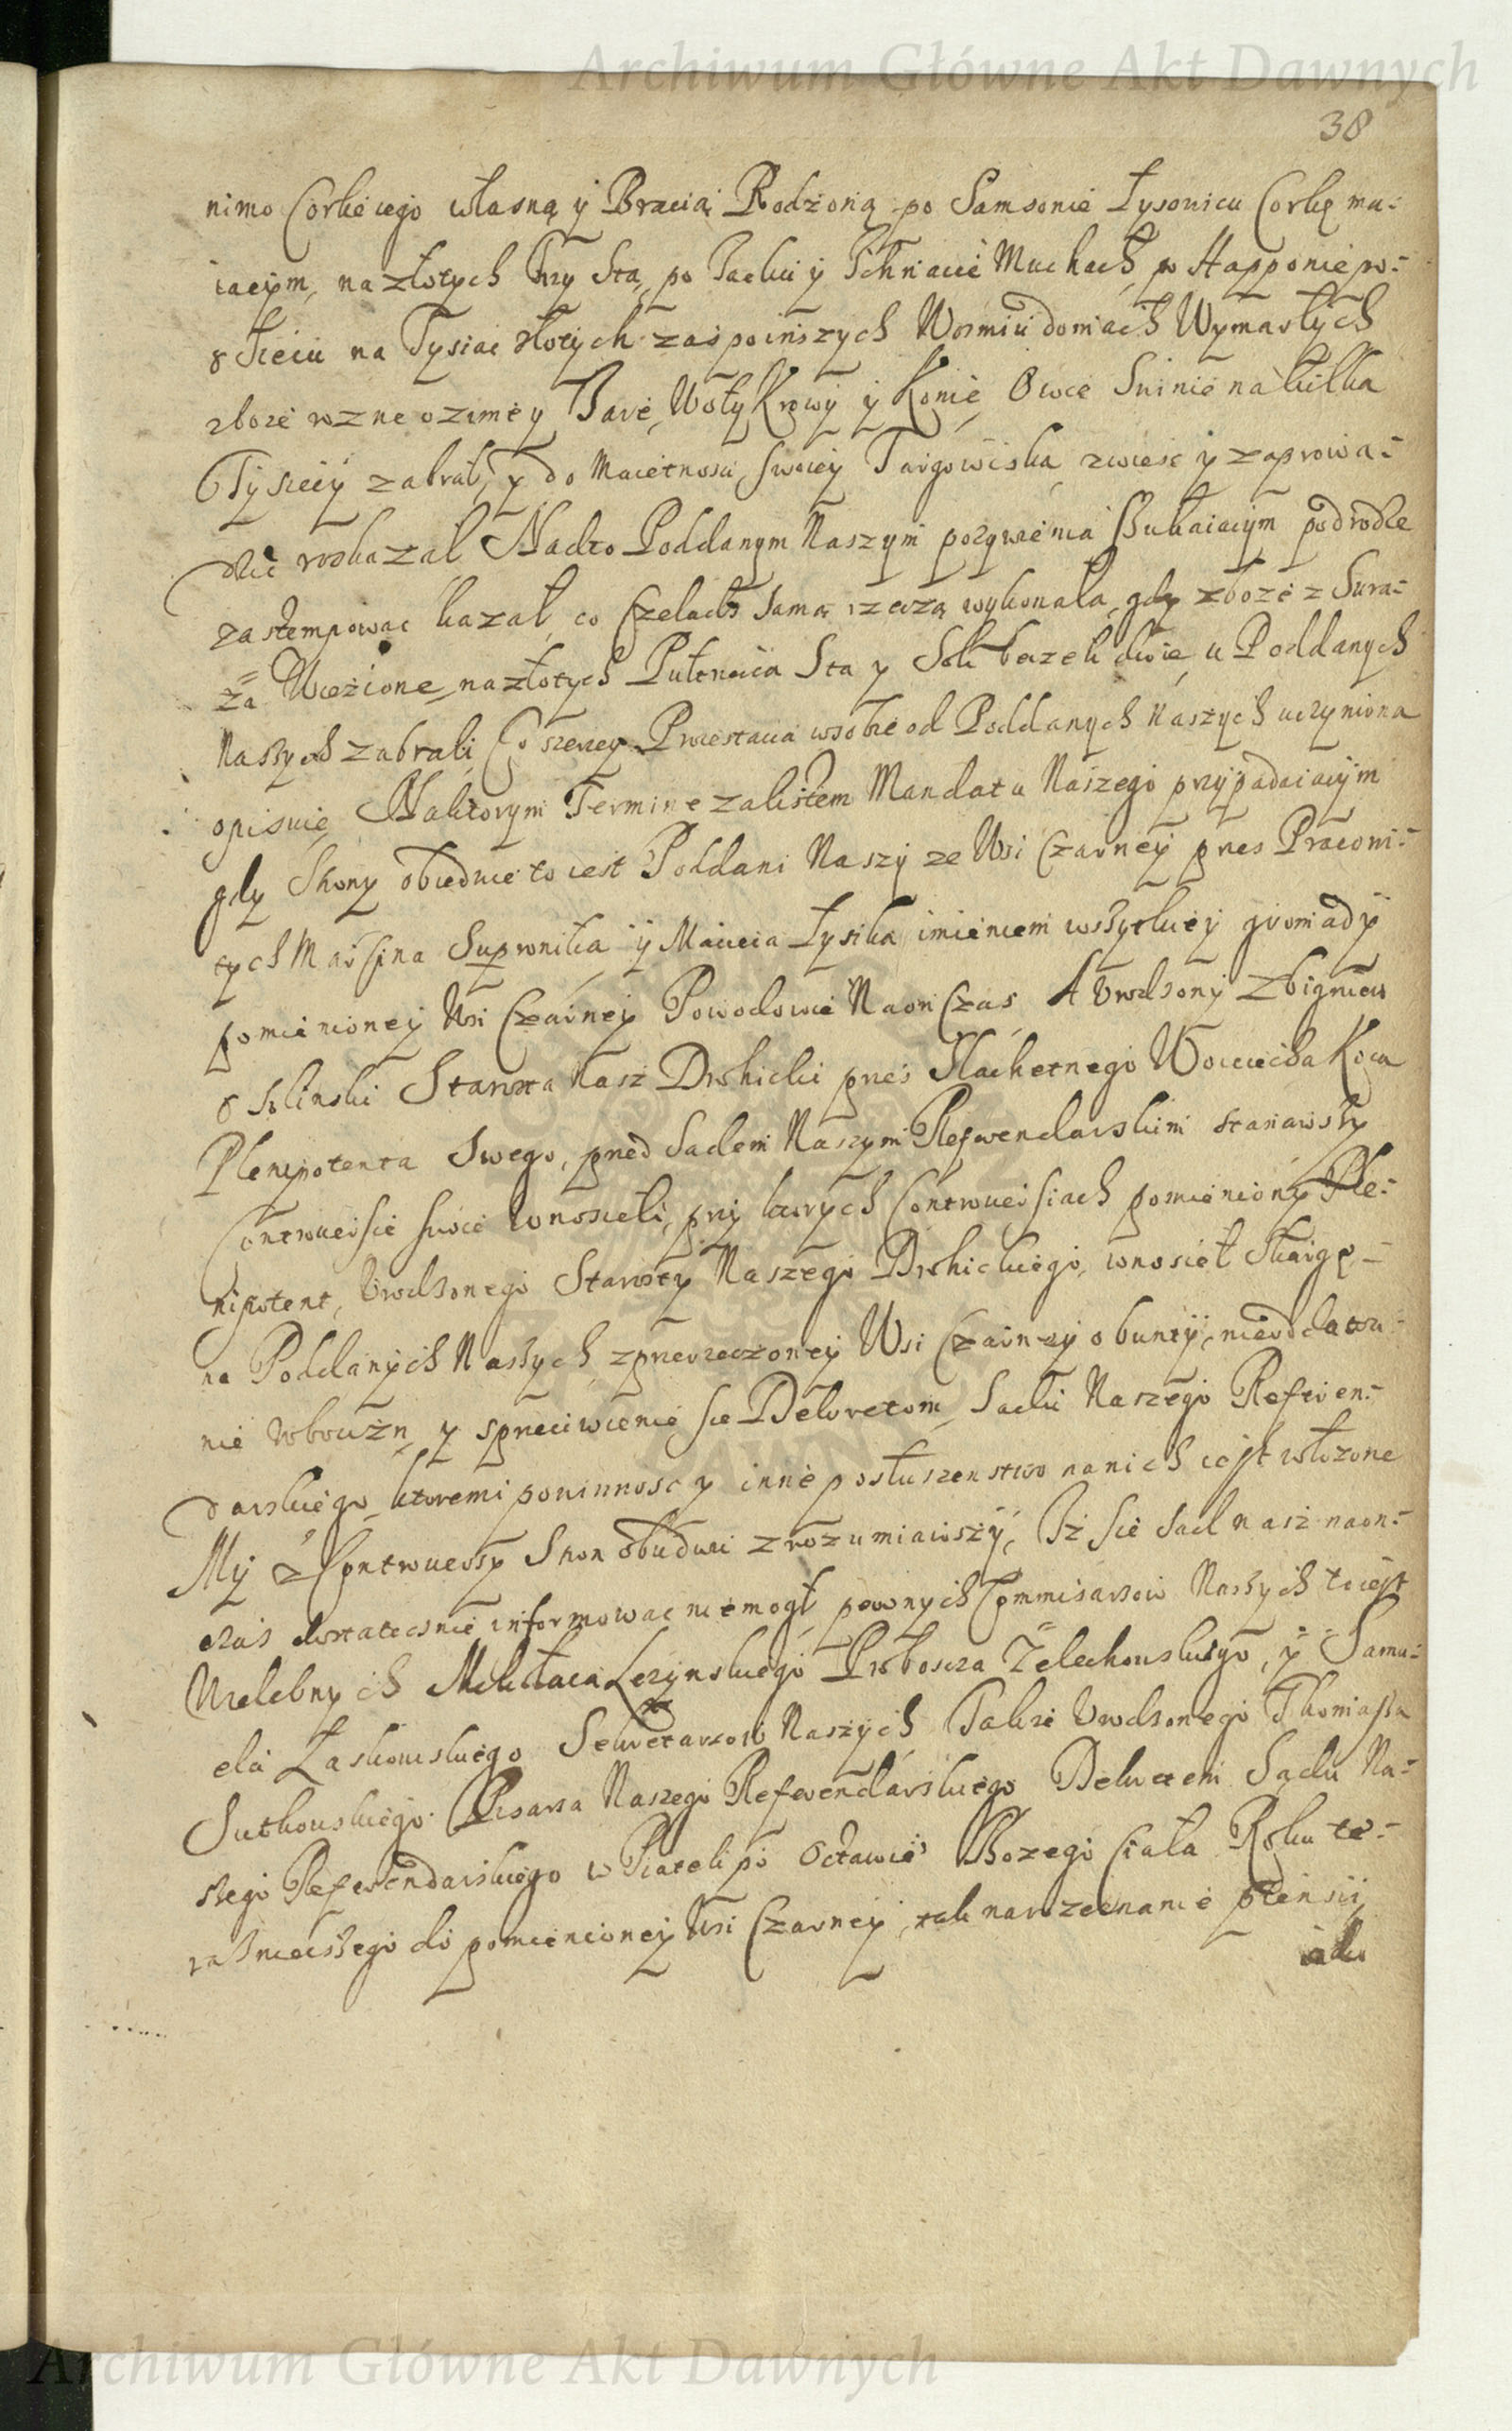 Archiwum Główne Akt Dawnych
38
nimo Corkę iego własną y Bracią Rodzoną po Samsonie Łysonicu Corkę ma-
iącym, na złotych Trzy Sta, po Jacku y Ichnacie Muchach, po Happonie po-
o Sieciu na Tysiąc złotych zas po inszych Wosmiu domach Wymarłych
zboże rozne ozime y Jare, Woły Krowy y Konie, Owce Swinie na kilka
Tysięcy zabrał, y do Maiętnosci swoiey Targowiska zwiesc y zaprowa-
dzic roskazał Nadto Poddanym Naszym pozywienia Szukaiącym po drodze
zastempowac kazał, co Czeladz sama rzeczą wykonała, gdy zboże z Sura-
za Wiezione na złotych Pułtrzecia Sta y Soli beczek dwie u Poddanych
Naszych zabrali, Co szerzey Protestacia w sobie od Poddanych Naszych uczyniona
opisuie, Na ktorym Terminie za listem Mandatu Naszego przypadaiącym
gdy Strony obiedwie to iest Poddani Naszy ze Wsi Czarney przez Pracowi-
tych Marcina Supronika y Macieia Łysika imieniem wszytkiey gromady
pomienioney Wsi Czarney Powodowie Na on Czas A Vrodzony Zbigniew
Ossolinski Starosta Nasz Drohicki przez Slachetnego Woyciecha Koca
Plenipotenta Swego, przed Sądem Naszym Referendarskim stanąwszy
Controuersie swoie wnosieli, przy ktorych Controuersiach pomieniony Ple-
nipotent, Vrodzonego Starosty Naszego Drohickiego, wnosieł Skargę
na Poddanych Naszych z przerzeczoney Wsi Czarney o bunty, nieoddawa-
nie robocizn y sprzeciwienie się Dekretom Sądu Naszego Referen-
darskiego, ktoremi powinnosc y inne posłuszenstwo na nich iest włożone
My z Controuersy Stron obudwu zrozumiawszy, Iż się Sąd nasz na on-
czas dostatecznie informowac nie mogł, pewnych Commisarzow Naszych to iest
Wielebnych Mikołaia Leżynskiego Proboscza Zelechowskiego, y Samu-
ela Laskowskiego Sekretarzow Naszych Takze Vrodzonego Thomasza
Sutkowskiego Pisarza Naszego Referendarskiego Dekretem Sądu Na-
szego Referendarskiego w Piątek po Octawie Bożego Ciała Roku te-
raznieyszego do pomienioney Wsi Czarney, tak na rozeznanie pensii
iako
Archiwum Główne Akt Dawnych